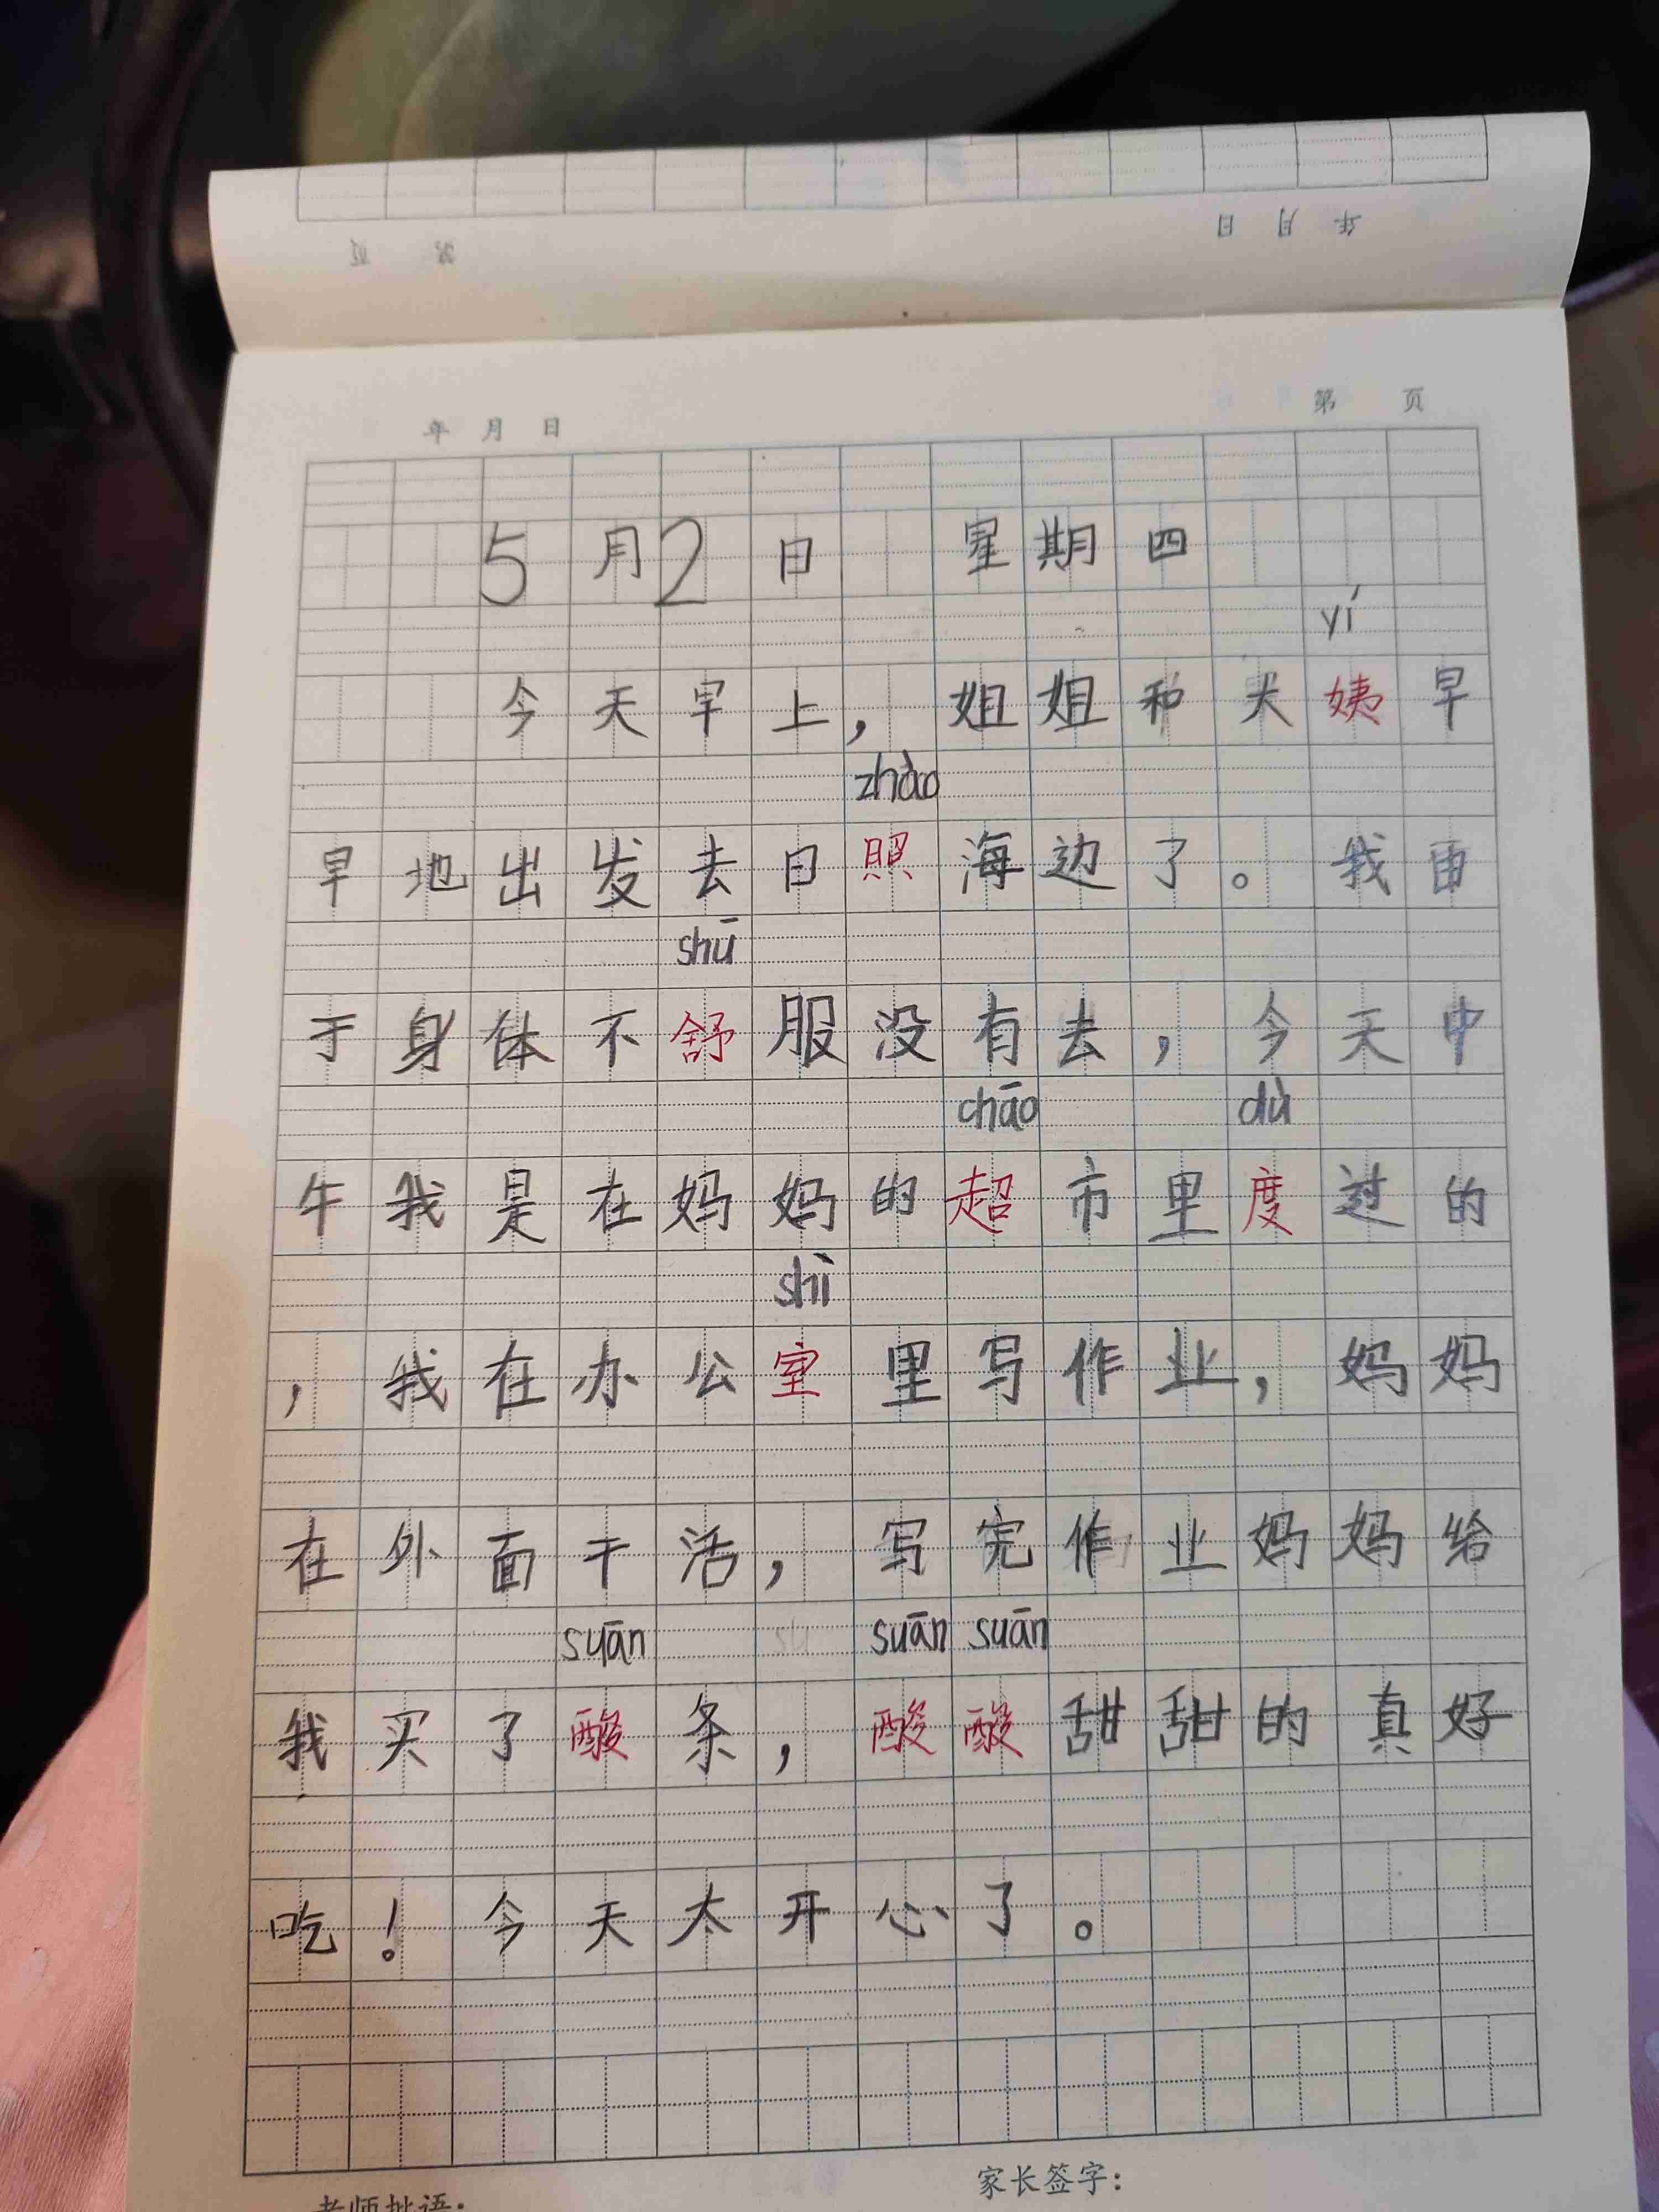 年 月 日
页 第
年 月 日 第 页
5月2日 星期四
yí
今天早上，姐姐和大姨早
zhào
早地出发去日照海边了。我由
shū
于身体不舒服没有去，今天中
chāo dù
午我是在妈妈的超市里度过的
shì
，我在办公室里写作业，妈妈
在外面干活，写完作业妈妈给
suān su suān suān
我买了酸条，酸酸甜甜的真好
吃！今天太开心了。
家长签字：
老师批语：